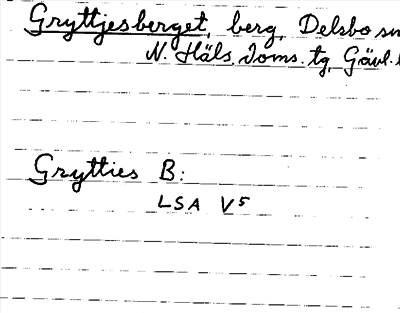 Gryttjesberget, berg, Delsbo sn
N. Häls. Doms. tg, Gävl.
Grytties B:
LSA V5